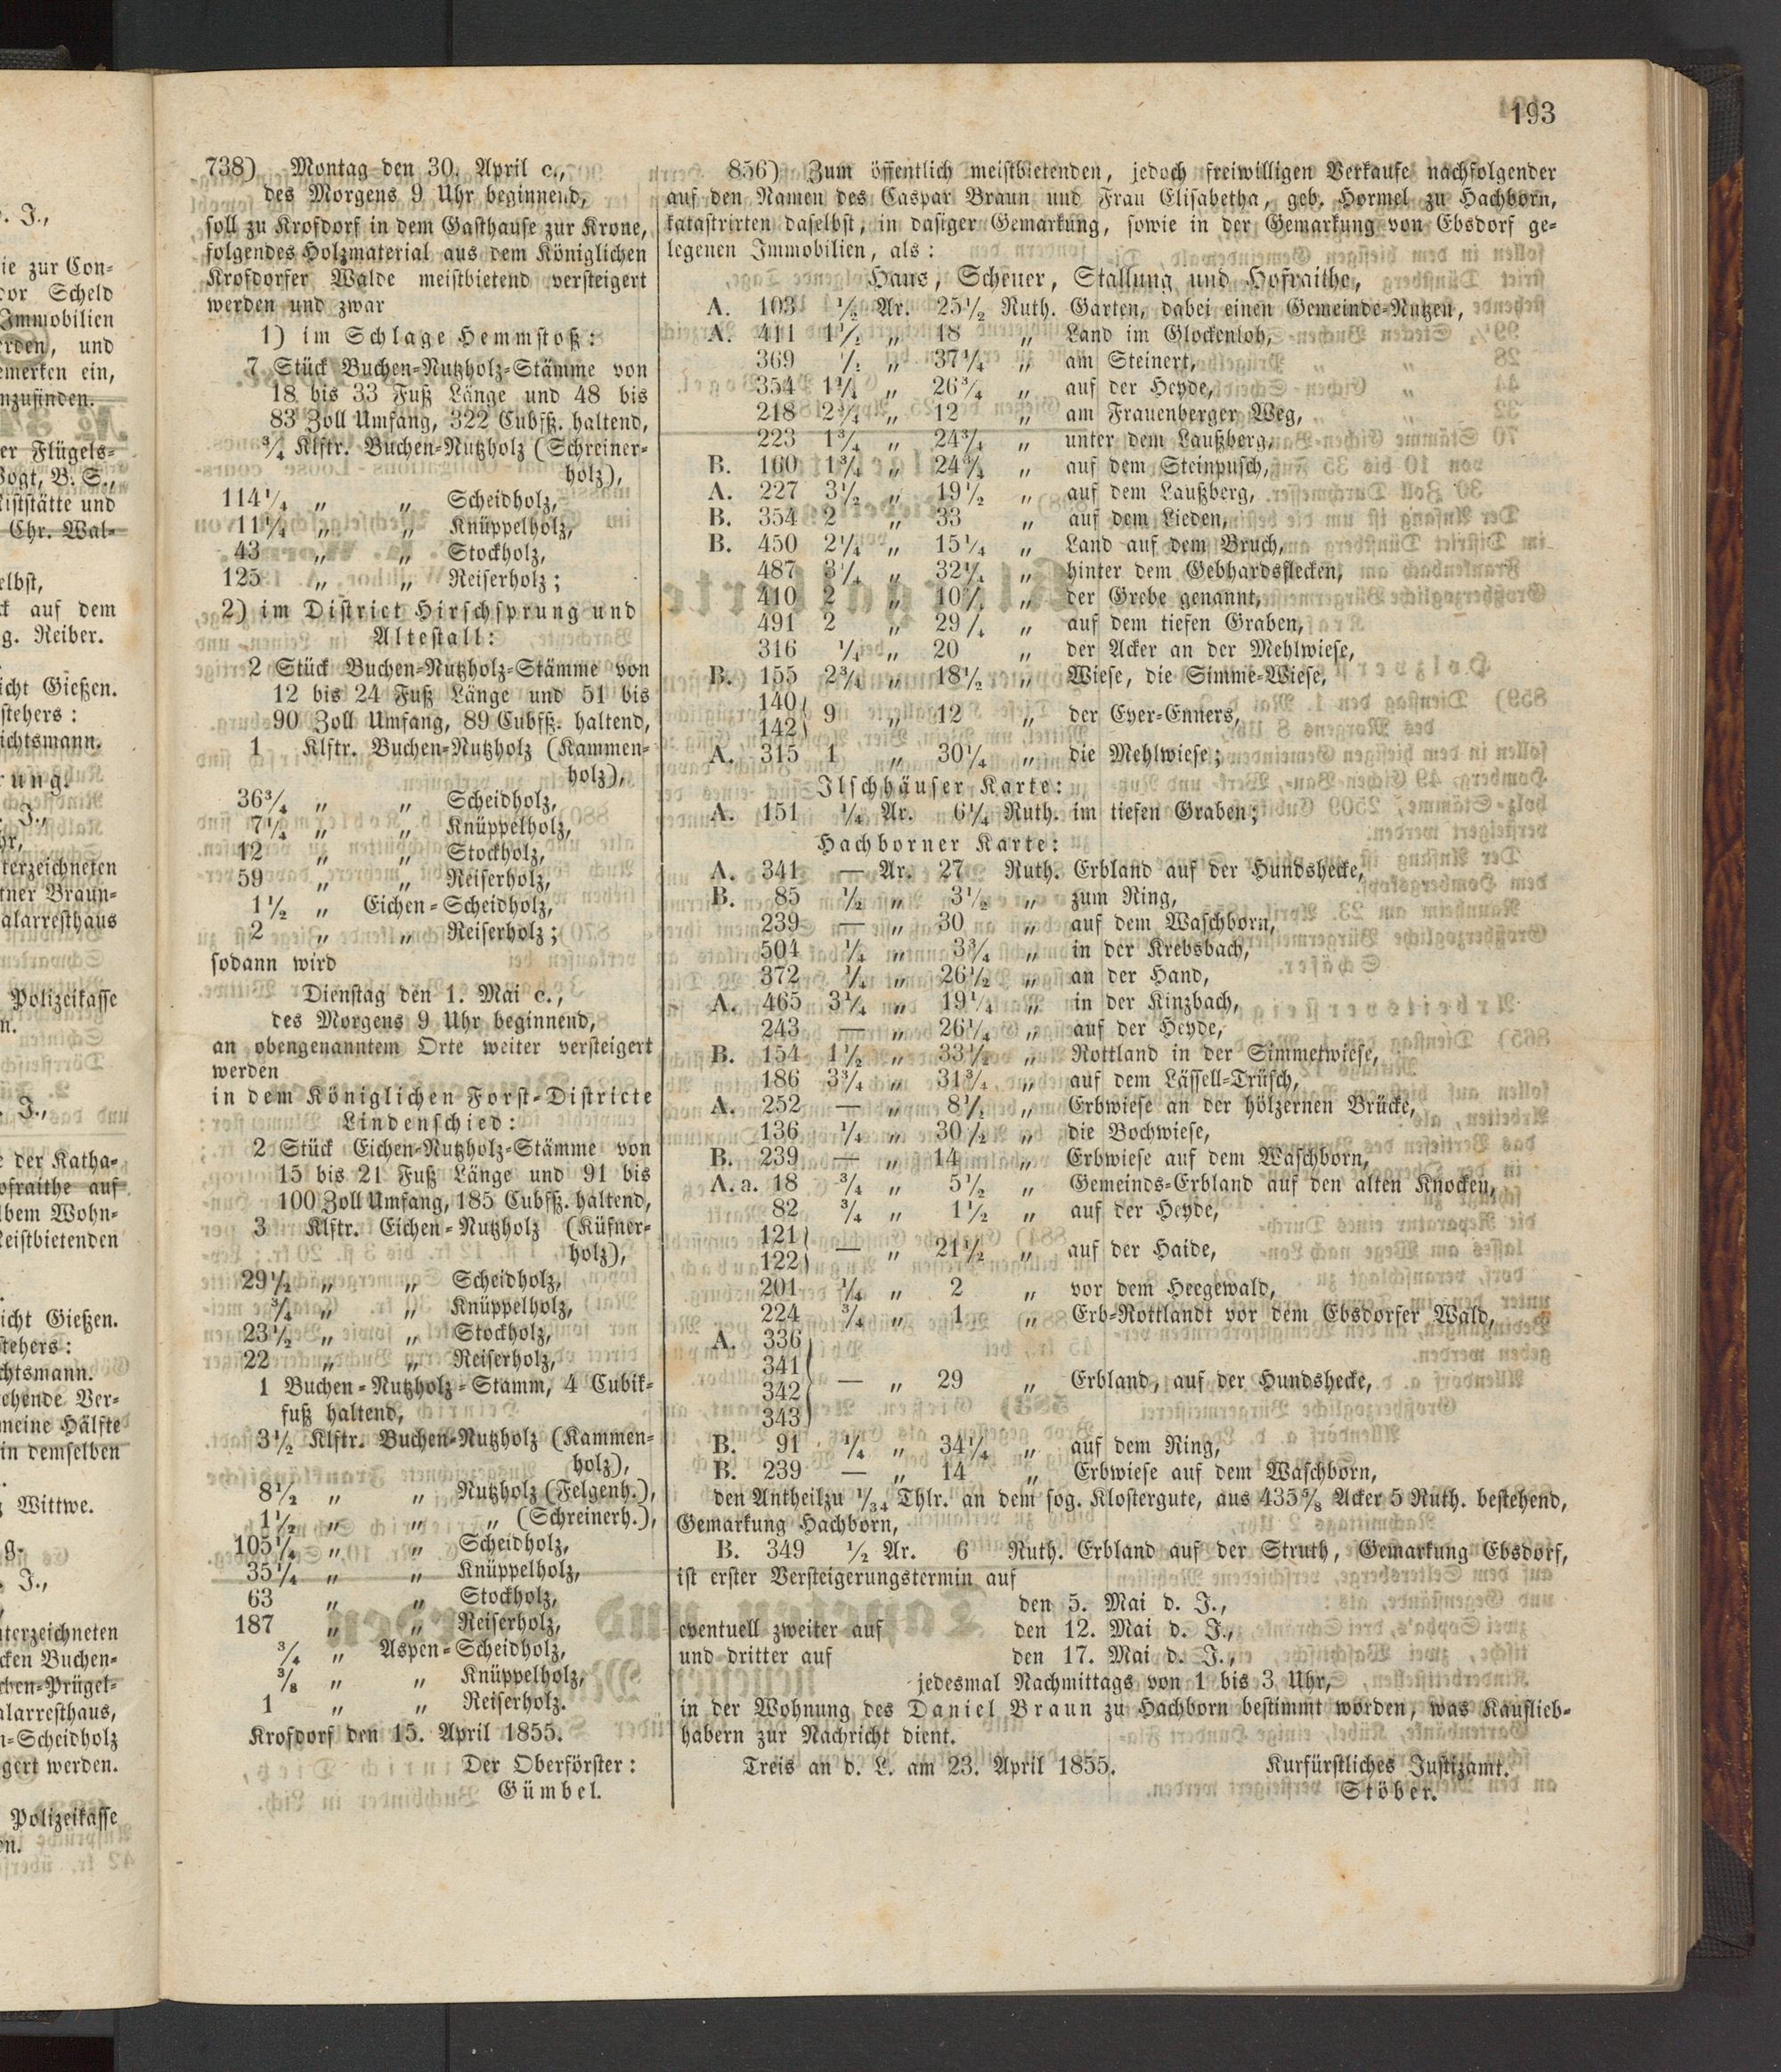 193
738) Montag den 30. April c.,
des Morgens 9 Uhr beginnend,
soll zu Krofdorf in dem Gasthause zur Krone,
folgendes Holzmaterial aus dem Königlichen
Krofdorfer Walde meistbietend versteigert
werden und zwar
1) im Schlage Hemmstoß:
7 Stück Buchen-Nutzholz-Stämme von
18 bis 33 Fuß Länge und 48 bis
83 Zoll Umfang, 322 Cubfß. haltend,
3/4 Klftr. Buchen-Nutzholz (Schreiner-
holz),
114 1/4 „ „ Scheidholz,
11 1/4 „ „ Knüppelholz,
43 „ „ Stockholz,
125 „ „ Reiserholz;
2) im District Hirschsprung und
Altestall:
2 Stück Buchen-Nutzholz-Stämme von
12 bis 24 Fuß Länge und 51 bis
90 Zoll Umfang, 89 Cubfß. haltend,
1 Klftr. Buchen-Nutzholz (Kammen-
holz),
36 3/4 „ „ Scheidholz,
7 1/4 „ „ Knüppelholz,
12 „ „ Stockholz,
59 „ „ Reiserholz,
1 1/2 „ Eichen-Scheidholz,
2 „ „ Reiserholz;
sodann wird
Dienstag den 1. Mai c.,
des Morgens 9 Uhr beginnend,
an obengenanntem Orte weiter versteigert
werden
in dem Königlichen Forst-Districte
Lindenschied:
2 Stück Eichen-Nutzholz-Stämme von
15 bis 21 Fuß Länge und 91 bis
100 Zoll Umfang, 185 Cubfß. haltend,
3 Klftr. Eichen-Nutzholz (Küfner-
holz),
29 1/2 „ „ Scheidholz,
3/4 „ „ Knüppelholz,
23 1/2 „ „ Stockholz,
22 „ „ Reiserholz,
1 Buchen-Nutzholz-Stamm, 4 Cubik-
fuß haltend,
3 1/2 Klftr. Buchen-Nutzholz (Kammen-
holz),
8 1/2 „ „ Nutzholz (Felgenh.),
1 1/2 „ „ „ (Schreinerh.),
105 1/4 „ „ Scheidholz,
35 1/4 „ „ Knüppelholz,
63 „ „ Stockholz,
187 „ „ Reiserholz,
3/4 „ Aspen-Scheidholz,
3/8 „ „ Knüppelholz,
1 „ „ Reiserholz.
Krofdorf den 15. April 1855.
Der Oberförster:
Gümbel.
856) Zum öffentlich meistbietenden, jedoch freiwilligen Verkaufe nachfolgender
auf den Namen des Caspar Braun und Frau Elisabetha, geb. Hormel zu Hachborn,
katastrirten daselbst, in dasiger Gemarkung, sowie in der Gemarkung von Ebsdorf ge-
legenen Immobilien, als:
Haus, Scheuer, Stallung und Hofraithe,
A. 103 1/2 Ar. 25 1/2 Ruth. Garten, dabei einen Gemeinde-Nutzen,
A. 411 1 1/2 „ 18 „ Land im Glockenloh,
369 „ 37 1/4 „ am Steinert,
354 1 1/4 „ 26 3/4 „ auf der Heyde,
218 2 3/4 „ 12 „ am Frauenberger Weg,
223 1 3/4 „ 24 3/4 „ unter dem Laußberg,
B. 160 1 3/4 „ 24 3/4 „ auf dem Steinpusch,
A. 227 3 1/2 „ 19 1/2 „ auf dem Laußberg,
B. 354 2 „ 33 „ auf dem Lieden,
B. 450 2 1/4 „ 15 1/4 „ Land auf dem Bruch,
487 3 1/4 „ 32 1/4 „ hinter dem Gebhardsflecken,
410 2 „ 10 „ der Grebe genannt,
491 2 „ 29 „ auf dem tiefen Graben,
316 1/4 „ 20 „ der Acker an der Mehlwiese,
B. 155 2 3/4 „ 18 1/2 „ Wiese, die Simme-Wiese,
140
142 } 9 „ 12 „ der Eyer-Enners,
A. 315 1 „ 30 1/4 „ die Mehlwiese;
Ilschhäuser Karte:
A. 151 1/4 Ar. 6 1/4 Ruth. im tiefen Graben;
Hachborner Karte:
A. 341 — Ar. 27 Ruth. Erbland auf der Hundshecke,
B. 85 1/2 „ 3 1/2 „ zum Ring,
239 — „ 30 „ auf dem Waschborn,
504 1/4 „ 3 3/4 „ in der Krebsbach,
372 1/4 „ 26 1/2 „ an der Hand,
A. 465 3 1/4 „ 19 1/4 „ in der Kinzbach,
243 — „ 26 1/4 „ auf der Heyde,
B. 154 1 1/2 „ 33 1/2 „ Rottland in der Simmetwiese,
186 3 3/4 „ 31 3/4 „ auf dem Lässell-Trüsch,
A. 252 — „ 8 1/2 „ Erbwiese an der hölzernen Brücke,
136 1/4 „ 30 1/2 „ die Bochwiese,
B. 239 — „ 14 „ Erbwiese auf dem Waschborn,
A. a. 18 3/4 „ 5 1/2 „ Gemeinds-Erbland auf den alten Knocken,
82 3/4 „ 1 1/2 „ auf der Heyde,
121
122 } — „ 21 1/2 „ auf der Haide,
201 1/4 „ 2 „ vor dem Heegewald,
224 3/4 „ 1 „ Erb-Rottlandt vor dem Ebsdorfer Wald,
A. 336
341
342 } — „ 29 „ Erbland, auf der Hundshecke,
343
B. 91 1/4 „ 34 1/4 „ auf dem Ring,
B. 239 — „ 14 „ Erbwiese auf dem Waschborn,
den Antheil zu 1/34 Thlr. an dem sog. Klostergute, aus 435 5/8 Acker 5 Ruth. bestehend,
Gemarkung Hachborn,
B. 349 1/2 Ar. 6 Ruth. Erbland auf der Struth, Gemarkung Ebsdorf,
ist erster Versteigerungstermin auf
den 5. Mai d. J.,
eventuell zweiter auf den 12. Mai d. J.,
und dritter auf den 17. Mai d. J.,
jedesmal Nachmittags von 1 bis 3 Uhr,
in der Wohnung des Daniel Braun zu Hachborn bestimmt worden, was Kauflieb-
habern zur Nachricht dient.
Treis an d. L. am 23. April 1855. Kurfürstliches Justizamt.
Stöber.